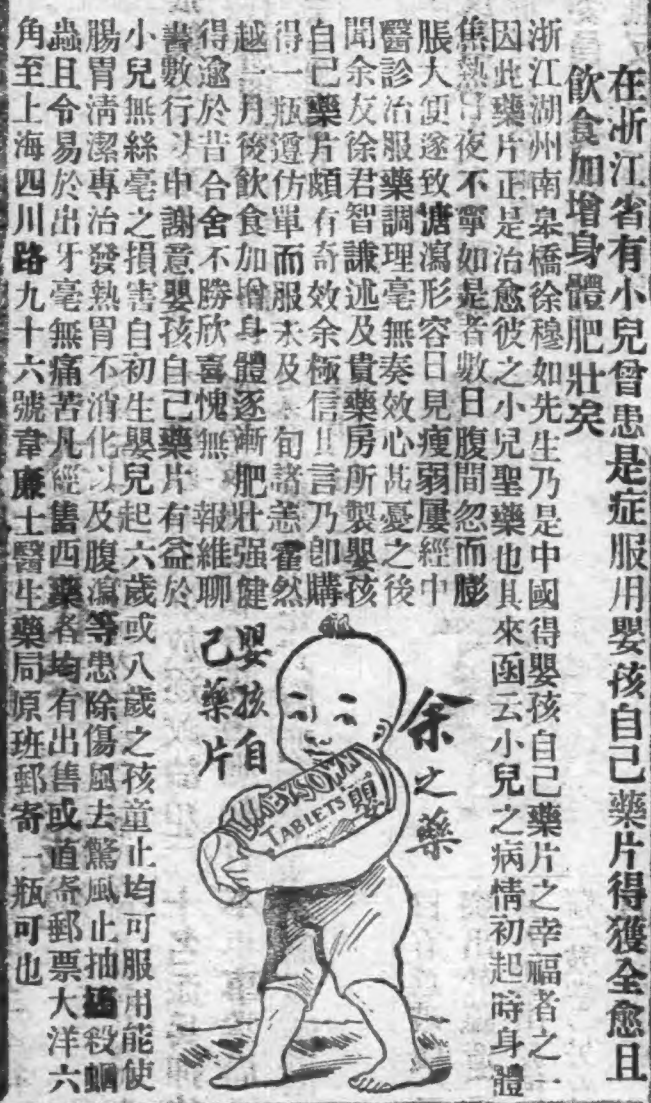 在浙江省有小兒曾患是症服用嬰孩自己藥片得獲全愈且
飲食加增身體肥壯矣
浙江湖州南皋橋徐穆如先生乃是中國得嬰孩自己藥片之幸福者之一
因此藥片正是治愈彼之小兒聖藥也其來函云小兒之病情初起時身體
焦熱日夜不寧如是者數日腹間忽而膨
脹大便遂致溏瀉形容日見瘦弱屢經中
醫診治服藥調理毫無奏效心甚憂之後
聞余友徐君智謙述及貴藥房所製嬰孩
自己藥片頗有奇效余極信其言乃卽購
得一瓶遵仿單而服未及 旬諸恙霍然
越一月後飲食加增身體逐漸肥壯强健
得逾於昔合舍不勝欣喜愧無 報維聊
書數行以申謝意嬰孩自己藥片有益於
小兒無絲毫之損害自初生嬰兒起六歲或八歲之孩童止均可服用能使
腸胃清潔專治發熱胃不消化以及腹瀉等患除傷風去驚風止抽搐殺蛔
蟲且令易於出牙毫無痛苦凡經售西藥者均有出售或直寄郵票大洋六
角至上海四川路九十六號韋廉士醫生藥局原班郵寄一瓶可也
余之藥
嬰孩自
己藥片
BABY'S OWN
TABLETS